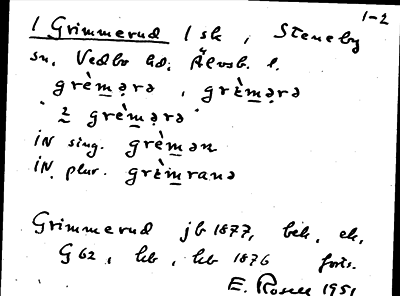 1-2
1 Grimmerud 1 sk, Steneby
sn, Vedbo hd. Älvsb. l.
grèm̲ərə, grèm̲ərə
" 2 grèm̲ərə "
iN sing. grèm̲ən
iN. plur. grèm̲ranə
Grimmerud jb 1877, beb. ek,
G 62, kb, kb 1876 forts.
E. Rosell 1951